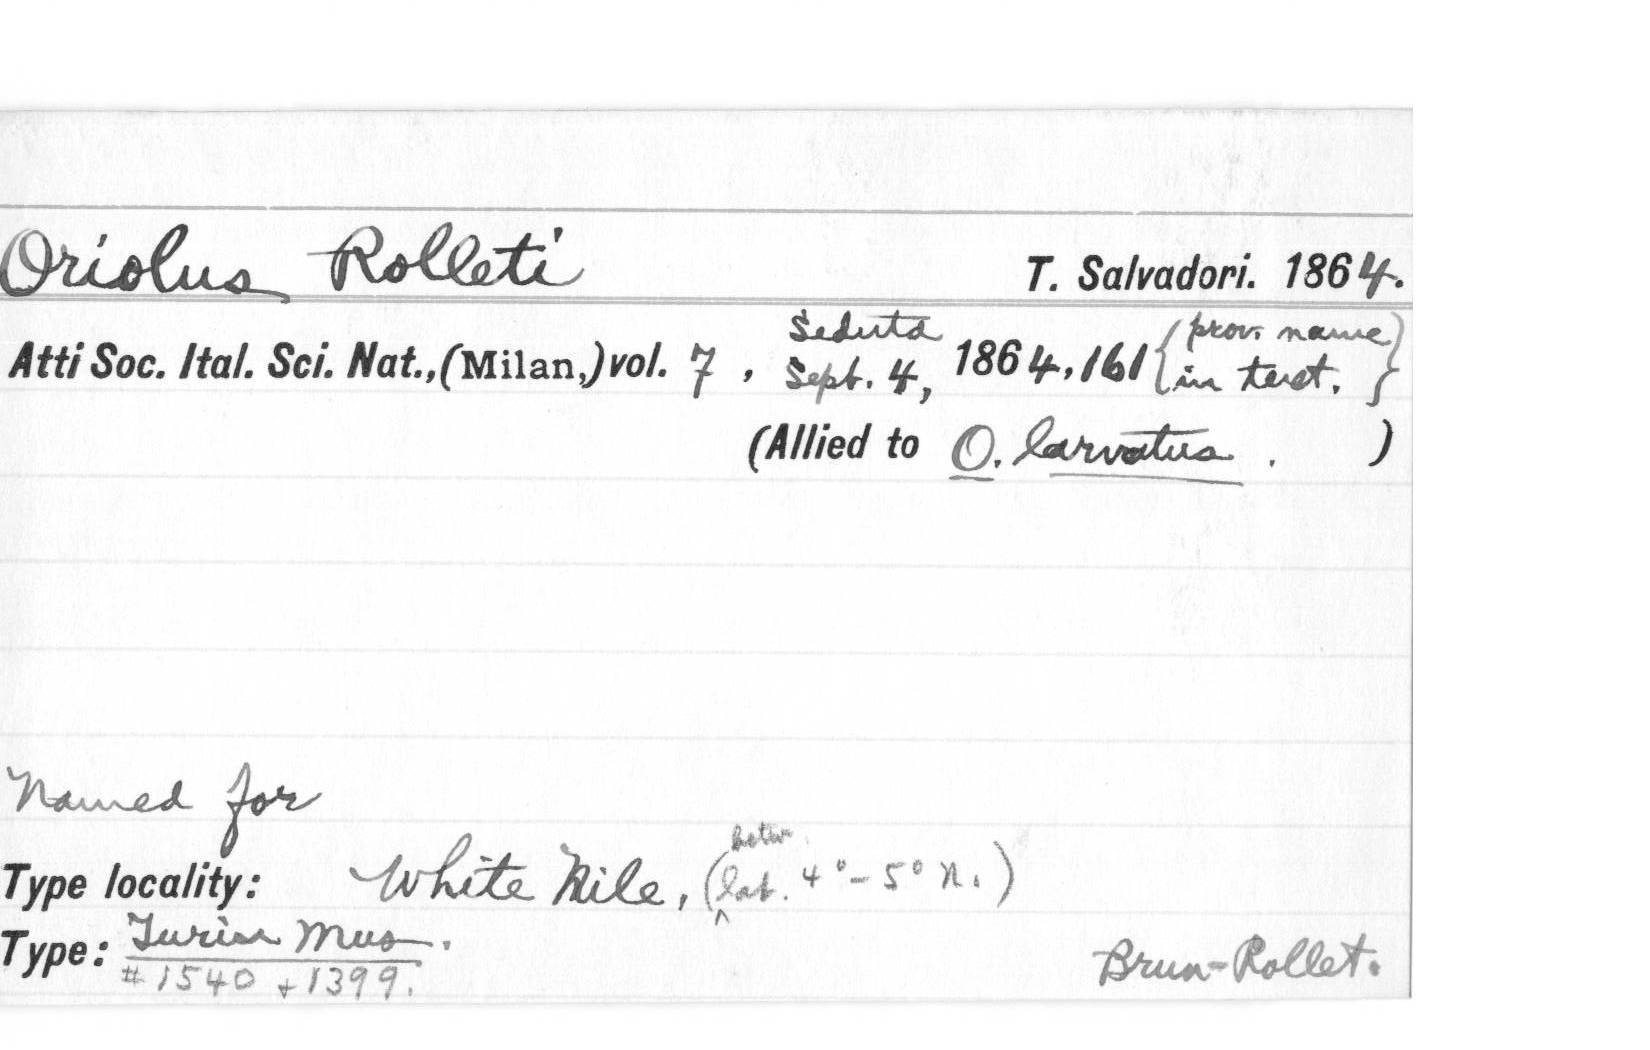 Oriolus Rolleti T. Salvadori. 1864.
Seduta (prov. name)
Atti Soc. Ital. Sci. Nat., (Milan,) vol. 7, Sept. 4, 1864, 161 {in text.}
(Allied to O. larvatus. )
Named for
betw.
Type locality: White Nile, (lat. 4° - 5° N.)
Type: Turin Mus.
# 1540 + 1399. Brun-Rollet.